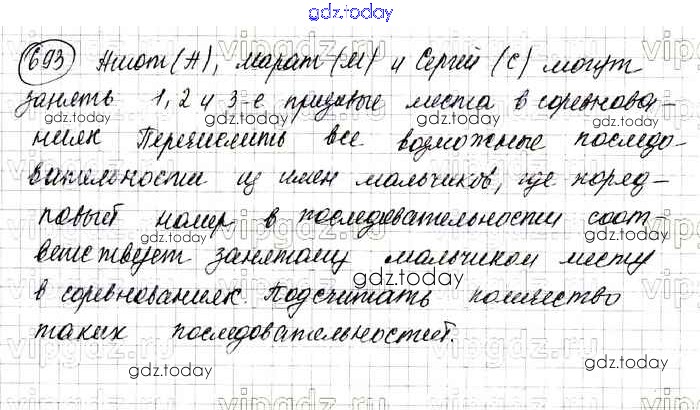 gdz.today
693 Антон (А), Марат (М) и Сергей (С) могут
занять 1, 2 и 3-е призовые места в соревнова-
ниях Перечислить все возможные последо-
вательности из имен мальчиков, где поряд-
ковый номер в последовательности соот
ветствует занятому мальчиком месту
в соревнованиях. Подсчитать количество
таких последовательностей.
gdz.today
gdz.today
gdz.today
gdz.today
gdz.today
gdz.today
vipgdz.ru